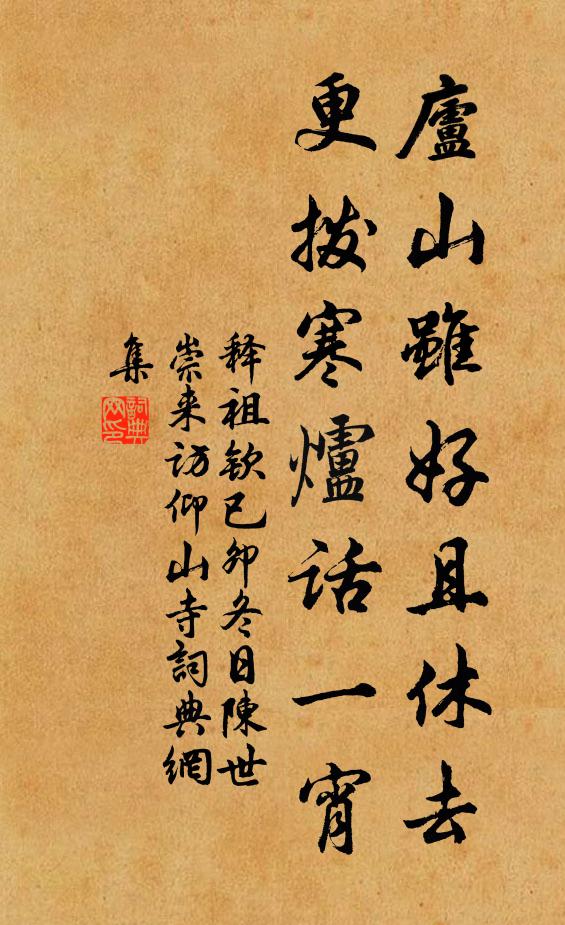 廬山雖好且休去
更撥寒爐話一宵
释祖欽己卯冬日陳世
崇来訪仰山寺詞典網
集
詞典
网印